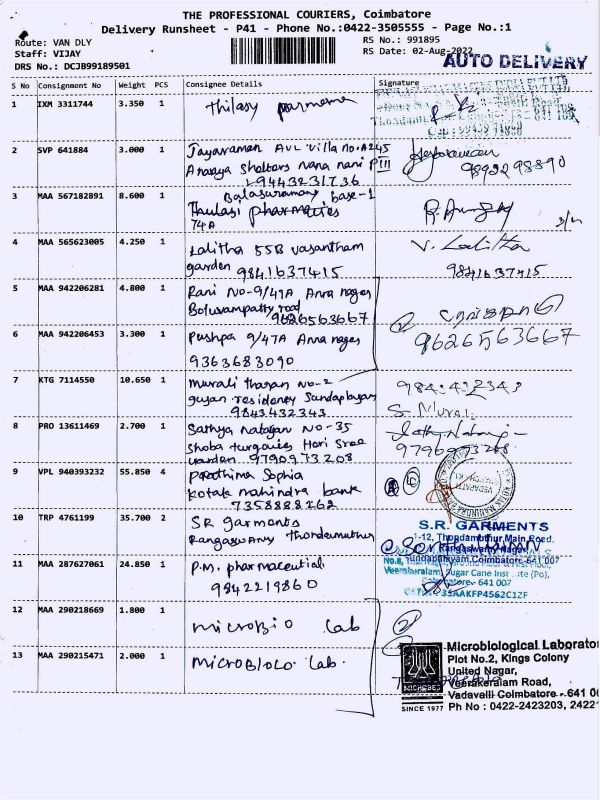 THE PROFESSIONAL COURIERS, Coimbatore
Delivery Runsheet - P41 - Phone No.:0422-3505555 - Page No.:1
Route: VAN DLY
RS No.: 991895
Staff: VIJAY
RS Date: 02-Aug-2022
AUTO DELIVERY
DRS No.: DCJB99189501
S No Consignment No Weight PCS Consignee Details Signature
1 IXM 3311744 3.350 1 Thilasy
2 SVP 641884 3.000 1 Jayaraman AVL Villa No.A245
Ananya Shelters nana nani P III
9443231736
9892298890
3 MAA 567182891 8.600 1 Balasuramany base-1
Thulasi pharmacies
74A
4 MAA 565623005 4.250 1 Lalitha 55B vasantham
garden 9841637415
V. Lalitha
9841637415
5 MAA 942206281 4.800 1 Rani No-9/47A Anna nagar
Boluvampatty road
9626563667
6 MAA 942206453 3.300 1 Pushpa 9/47A Anna nagar
9363683090
9626563667
7 KTG 7114550 10.650 1 Murali tharan No-2
gujan residency Sundapalayam
9843432343
9843432343
S. Murali
8 PRO 13611469 2.700 1 Sathya Natajan NO-35
Shoba turquies Hari Sree
garden 9790973208
9790973208
9 VPL 940393232 55.850 4 Prathima Sophia
Kotak mahindra bank
7358888262
10 TRP 4761199 35.700 2 SR garments
Rangaswamy Thondamuthur
S.R. GARMENTS
1-12, Thondamuthur Main Road,
Rangaswamy Nagar,
Sundapalayam, Coimbatore-641 007
11 MAA 287627061 24.850 1 P.M. pharmaceutical
9842219860
Veerakeralam, Sugar Cane Institute (Po),
Coimbatore- 641 007
33AAKFP4562C1ZF
12 MAA 290218669 1.800 1 MICROBIO Lab
13 MAA 290215471 2.000 1 MICROBIOLO Lab.
MICROBES
SINCE 1977
Microbiological Laborator
Plot No.2, Kings Colony
United Nagar,
Veerakeralam Road,
Vadavalli Coimbatore - 641 0
Ph No : 0422-2423203, 2422